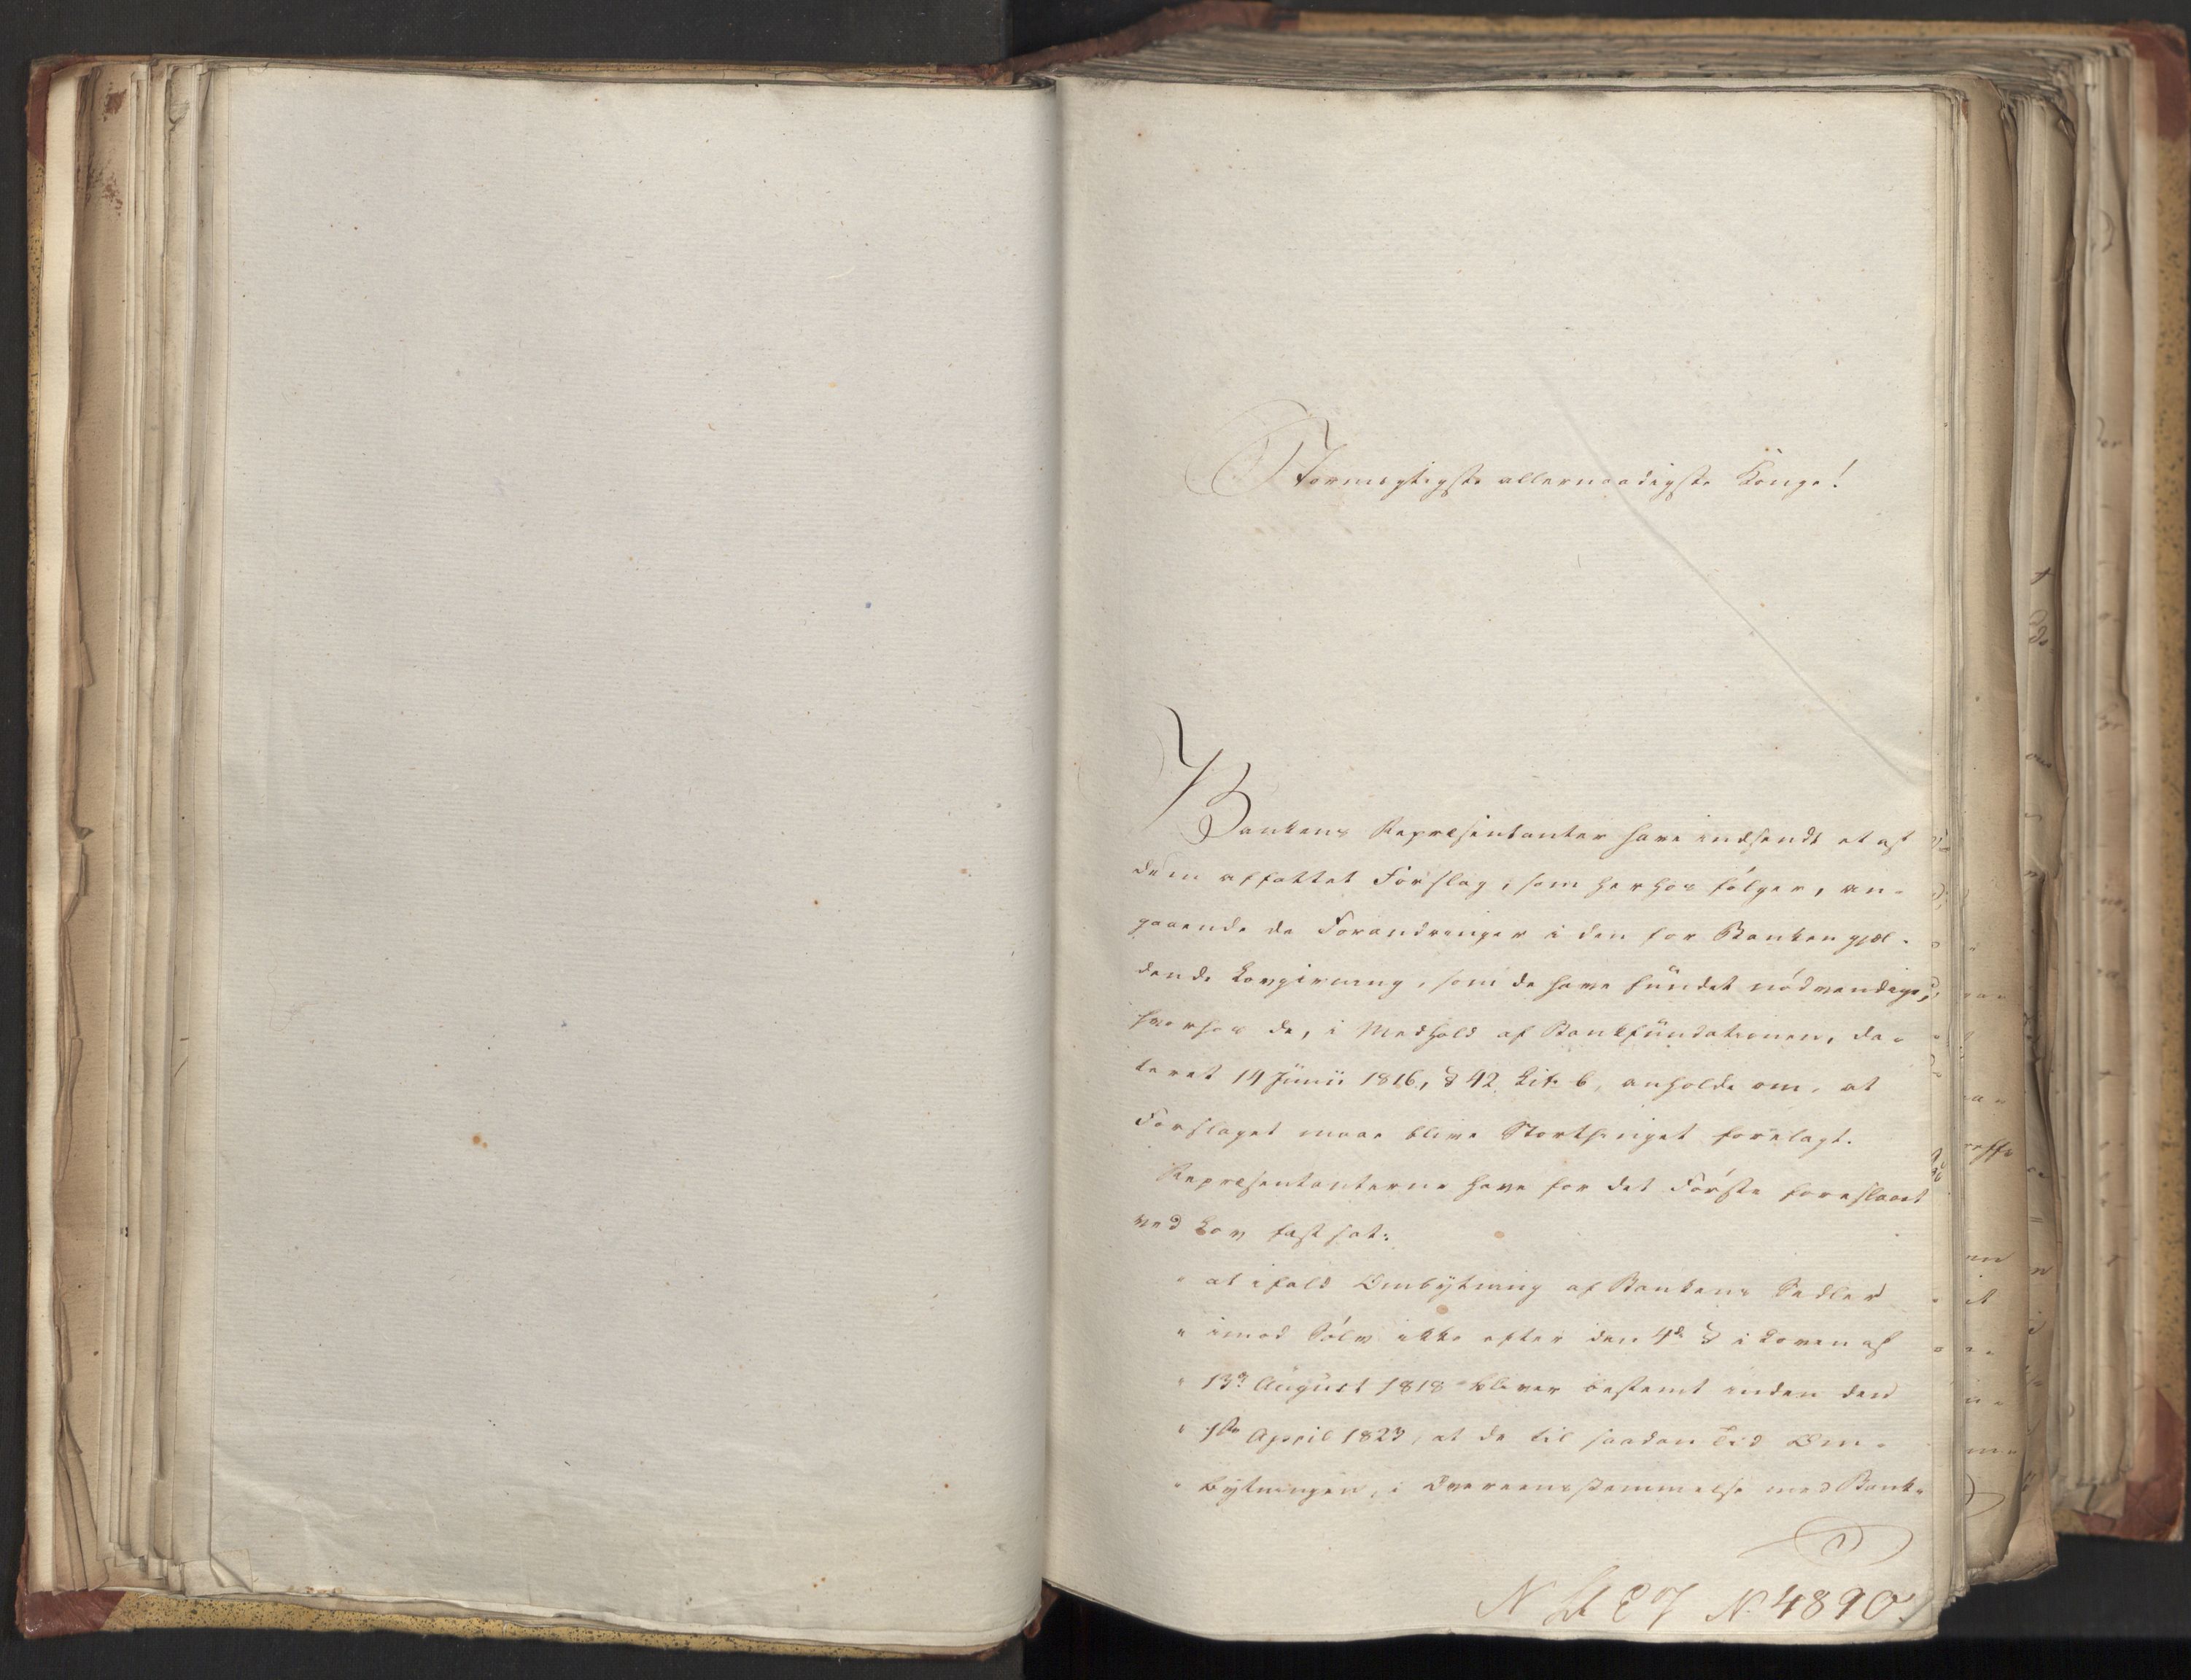 Stormægtigste allernaadigste Konge!
Bankens Repræsentanter have indsendt et af
dem affattet Forslag, som herhos følger, an-
gaaende de Forandringer i den for Banken gjæl-
dende Lovgivning, som de have fundet nødvendige,
hvorhos de, i Medhold af Bankfundationen, da-
teret 14 Junii 1816, § 42 Lit. b, anholde om, at
Forslaget maae blive Storthinget forelagt.
Repræsentanterne have for det Første foreslaaet
ved Lov fastsat:
" at ifald Ombytning af Bankens Sedler
" imod Sølv ikke efter den 4de § i Loven af
" 13de August 1818 bliver bestemt inden den
" 1ste April 1823, at da til saadan Tid Om-
" bytningen, i Overeensstemmelse med Bank-
N. 4890.